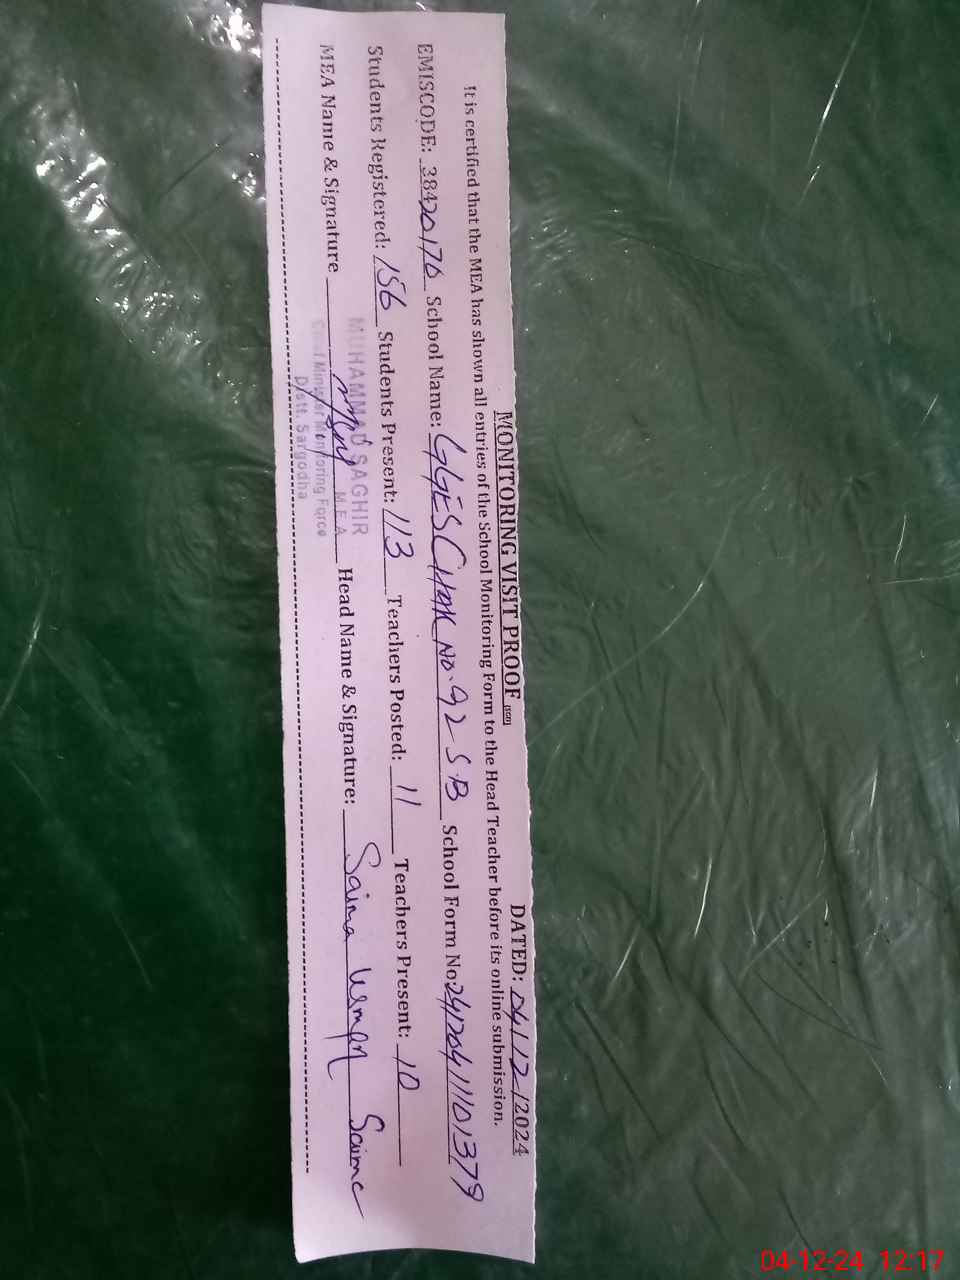 MONITORING VISIT PROOF (SED) DATED: 04/12/2024
It is certified that the MEA has shown all entries of the School Monitoring Form to the Head Teacher before its online submission.
EMISCODE: 38420170 School Name: GGES CHAK NO. 92 S.B School Form No:
Students Registered: 156 Students Present: 113 Teachers Posted: 11 Teachers Present: 10
MEA Name & Signature Head Name & Signature: Saima Usman Saima
MUHAMMAD SAGHIR
M.E.A
Chief Minister Monitoring Force
Distt. Sargodha
04-12-24 12:17